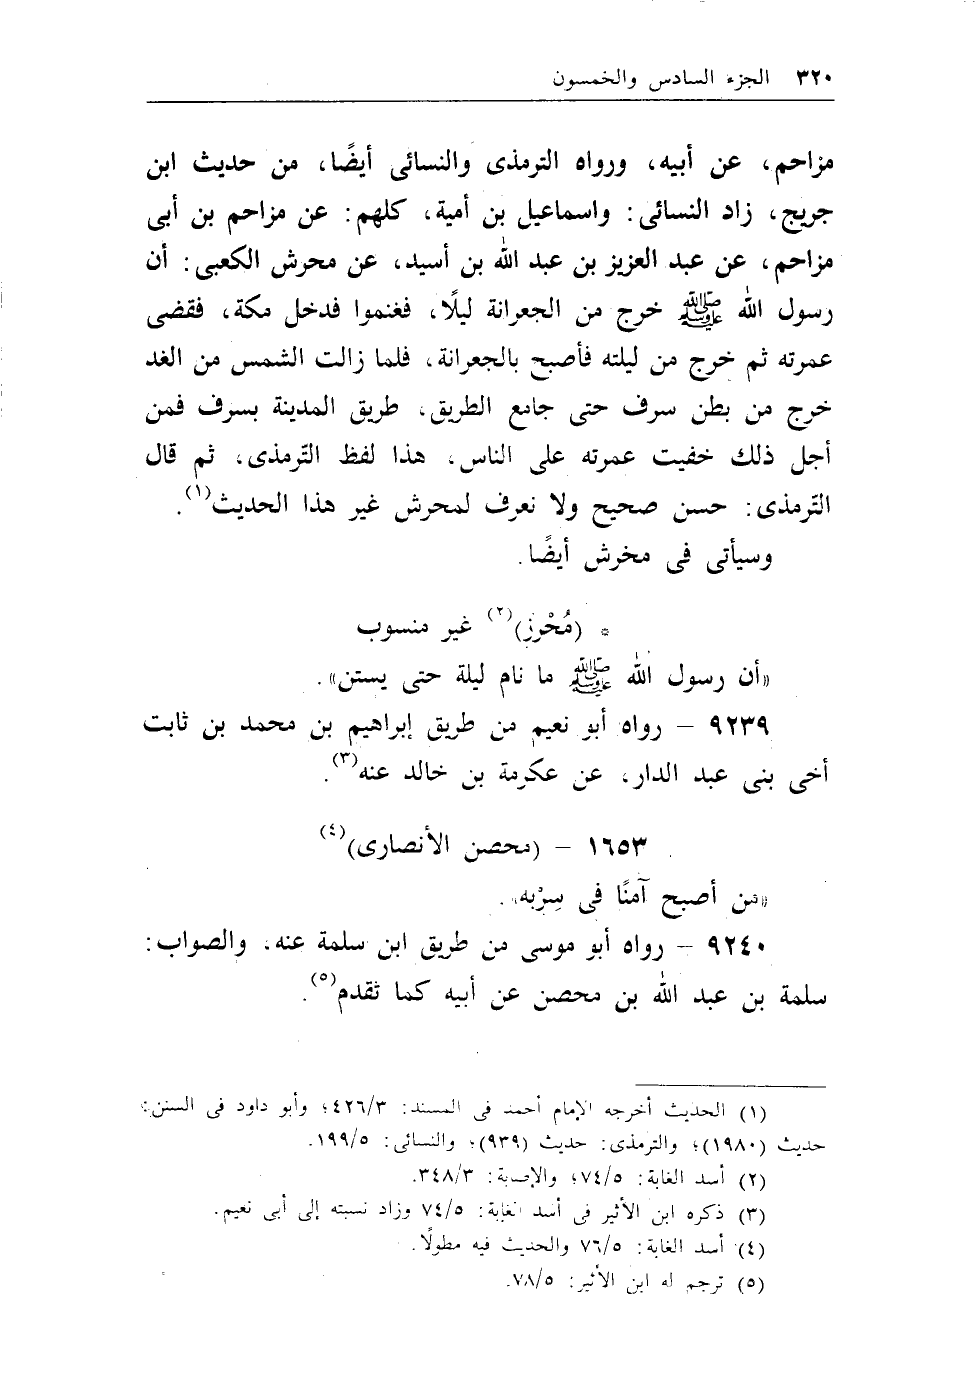 ٣٢٠ الجزء السادس والخمسون
مزاحم، عن أبيه، ورواه الترمذى والنسائى أيضًا، من حديث ابن
جريج، زاد النسائى: واسماعيل بن أمية، كلهم: عن مزاحم بن أبى
مزاحم، عن عبد العزيز بن عبد الله بن أسيد، عن محرش الكعبى: أن
رسول الله ﷺ خرج من الجعرانة ليلًا، فغنموا فدخل مكة، فقضى
عمرته ثم خرج من ليلته فأصبح بالجعرانة، فلما زالت الشمس من الغد
خرج من بطن سرف حتى جامع الطريق، طريق المدينة بسرف فمن
أجل ذلك خفيت عمرته على الناس، هذا لفظ التّرمذى، ثم قال
التّرمذى: حسن صحيح ولا نعرف لمحرش غير هذا الحديث(١).
وسيأتى فى مخرش أيضًا.
* (مُحْرِز)(٢) غير منسوب
«أن رسول الله ﷺ ما نام ليلة حتى يستن».
٩٢٣٩ – رواه أبو نعيم من طريق إبراهيم بن محمد بن ثابت
أخى بنى عبد الدار، عن عكرمة بن خالد عنه(٣).
١٦٥٣ – (محصن الأنصارى)(٤)
«من أصبح آمنًا فى سِرْبه».
٩٢٤٠ – رواه أبو موسى من طريق ابن سلمة عنه، والصواب:
سلمة بن عبد الله بن محصن عن أبيه كما تقدم(٥).
(١) الحديث أخرجه الإمام أحمد فى المسند: ٤٢٦/٣؛ وأبو داود فى السنن:
حديث (١٩٨٠)؛ والترمذى: حديث (٩٣٩)؛ والنسائى: ١٩٩/٥.
(٢) أسد الغابة: ٧٤/٥؛ والإصابة: ٣٤٨/٣.
(٣) ذكره ابن الأثير فى أسد الغابة: ٧٤/٥ وزاد نسبته إلى أبى نعيم.
(٤) أسد الغابة: ٧٦/٥ والحديث فيه مطولًا.
(٥) ترجم له ابن الأثير: ٧٨/٥.